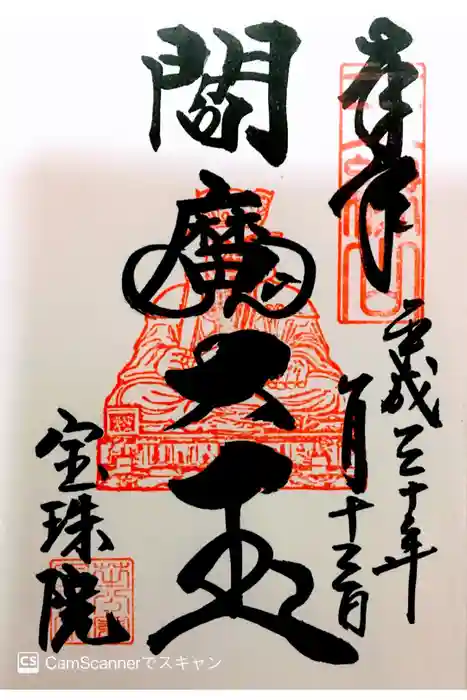 奉拝
平成三十年
八月十六日
閻魔大王
宝珠院
CS CamScannerでスキャン